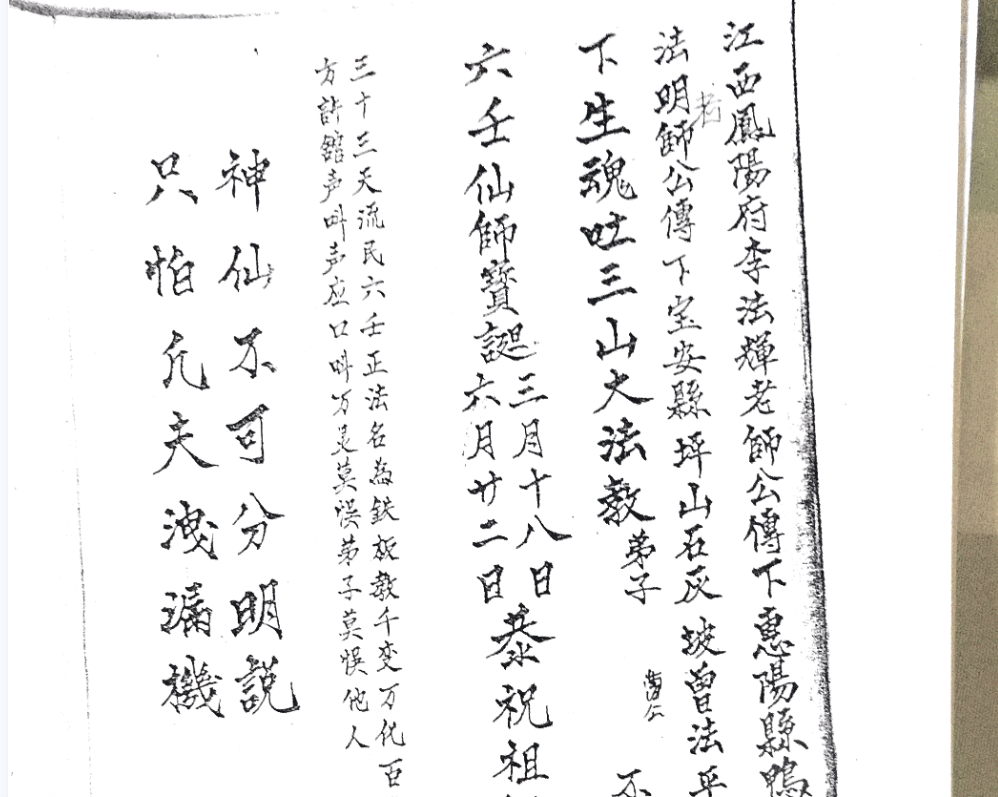 江西鳳陽府李法輝老師公傳下惠陽縣鴨
法明師公傳下宝安縣坪山石灰坡曾法平
老
下生魂吐三山大法教弟子
曾公
不
六壬仙師寶誕三月十八日
六月廿二日
恭祝祖
三十三天流民六壬正法名為鉄板教千变万化百
方許舘声叫声应口叫万灵莫悮弟子莫悮他人
神仙不可分明説
只怕凢夫洩漏機